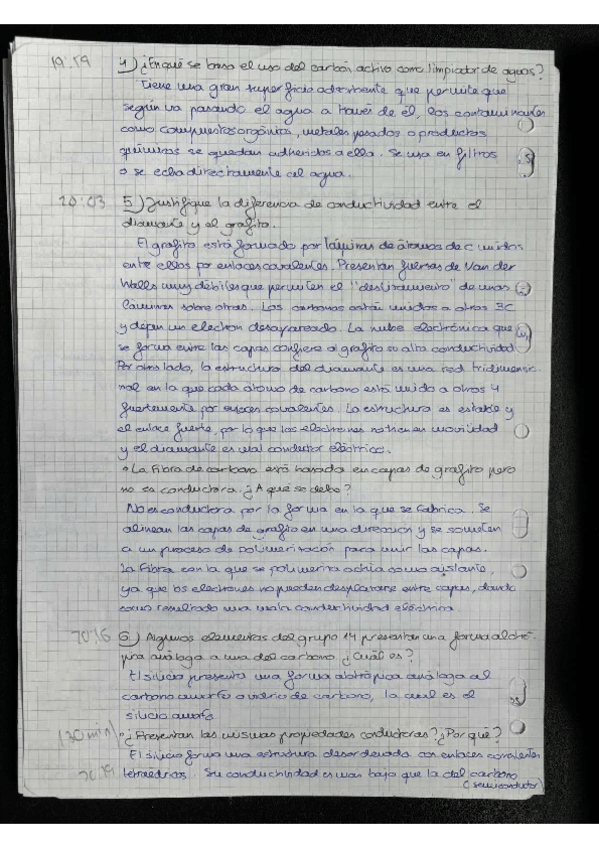 19:59 4) ¿En qué se basa el uso del carbón activo como limpiador de aguas?
Tiene una gran superficie adsorbente que permite que
según va pasando el agua a través de él, los contaminantes
como compuestos orgánicos, metales pesados o productos
químicos se quedan adheridos a ella. Se usa en filtros
o se echa directamente al agua.
20:03 5) Justifique la diferencia de conductividad entre el
diamante y el grafito.
El grafito está formado por láminas de átomos de C unidos
entre ellos por enlaces covalentes. Presentan fuerzas de Van der
Walls muy débiles que permiten el "deslizamiento" de unas
láminas sobre otras. Los carbonos están unidos a otros 3C
y dejan un electron desapareado. La nube electrónica que
se forma entre las capas confiere al grafito su alta conductividad
Por otro lado, la estructura del diamante es una red tridimensio
nal en la que cada átomo de carbono está unido a otros 4
fuertemente por enlaces covalentes. La estructura es estable y
el enlace fuerte, por lo que los electrones no tienen movilidad
y el diamante es mal conductor eléctrico.
• La Fibra de carbono está basada en capas de grafito pero
no es conductora. ¿A qué se debe?
No es conductora por la forma en la que se fabrica. Se
alinean las capas de grafito en una direccion y se someten
a un proceso de polimerización para unir las capas.
La fibra con la que se polimeriza actúa como aislante,
ya que los electrones no pueden desplazarse entre capas, dando
como resultado una mala conductividad eléctrica
20:16 6) Algunos elementos del grupo 14 presentan una forma alotró-
pica análoga a una del carbono ¿Cuál es?
El silicio presenta una forma alotrópica análoga al
carbono amorfo o vidrio de carbono, la cual es el
silicio amorfo
(30 min) • ¿Presentan las mismas propiedades conductoras? ¿Por qué?
El silicio forma una estructura desordenada con enlaces covalentes
tetraédricos. Su conductividad es mas bajo que la del carbono
(semiconductor)